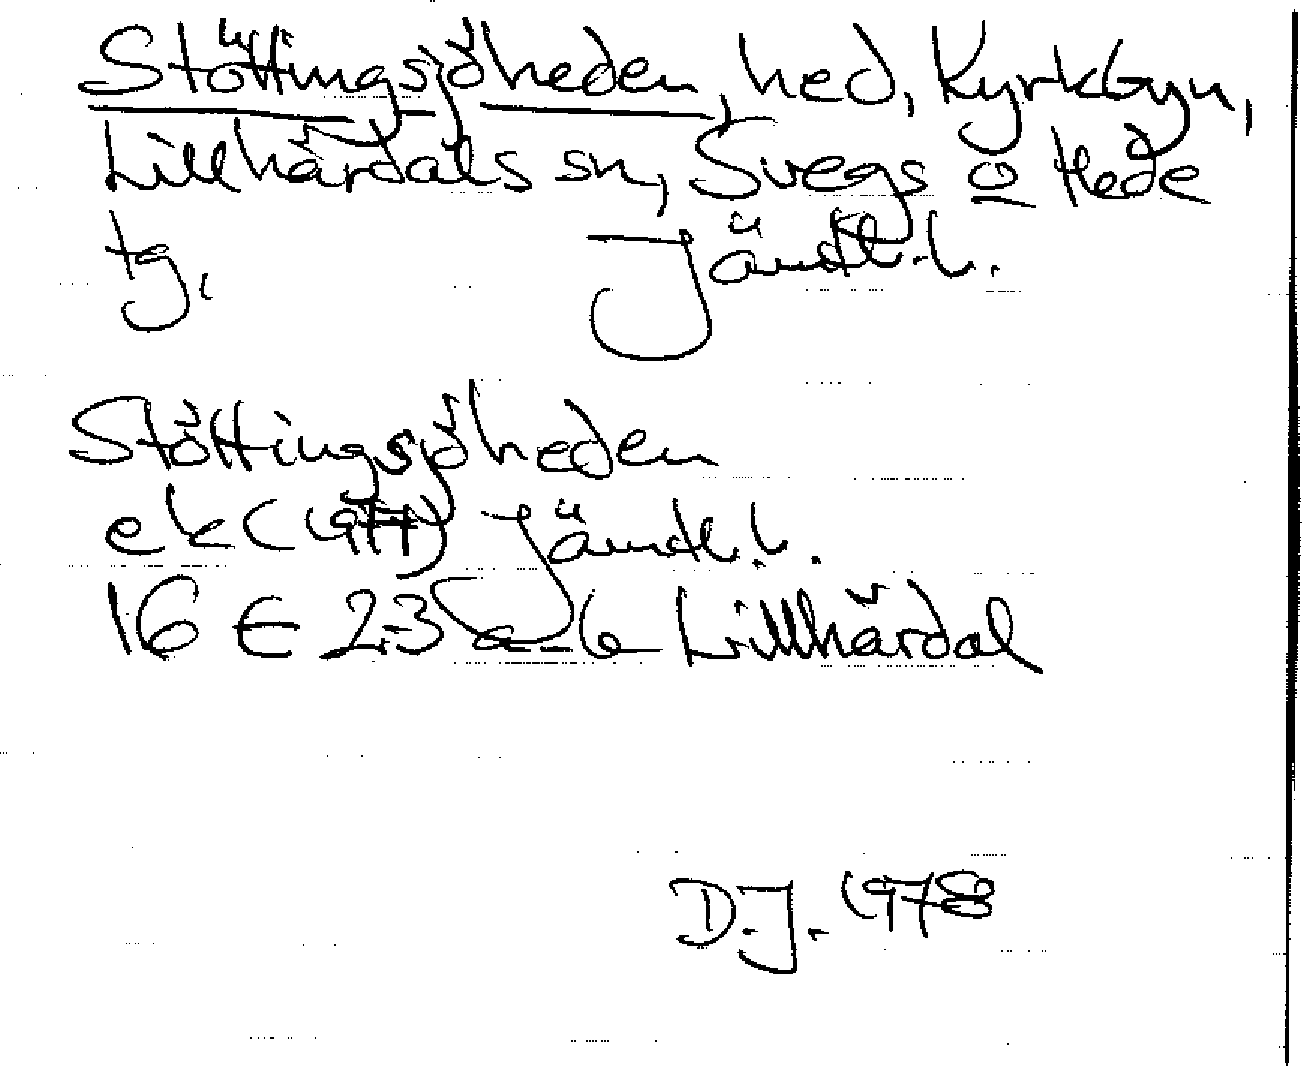 Stöttingsjöheden, hed, Kyrkbyn,
Lillhärdals sn, Svegs o Hede
tg, Jämtl. l.
Stöttingsjöheden
ek (1971) Jämtl. l.
16 E 2-3 a-b Lillhärdal
D.J. 1978